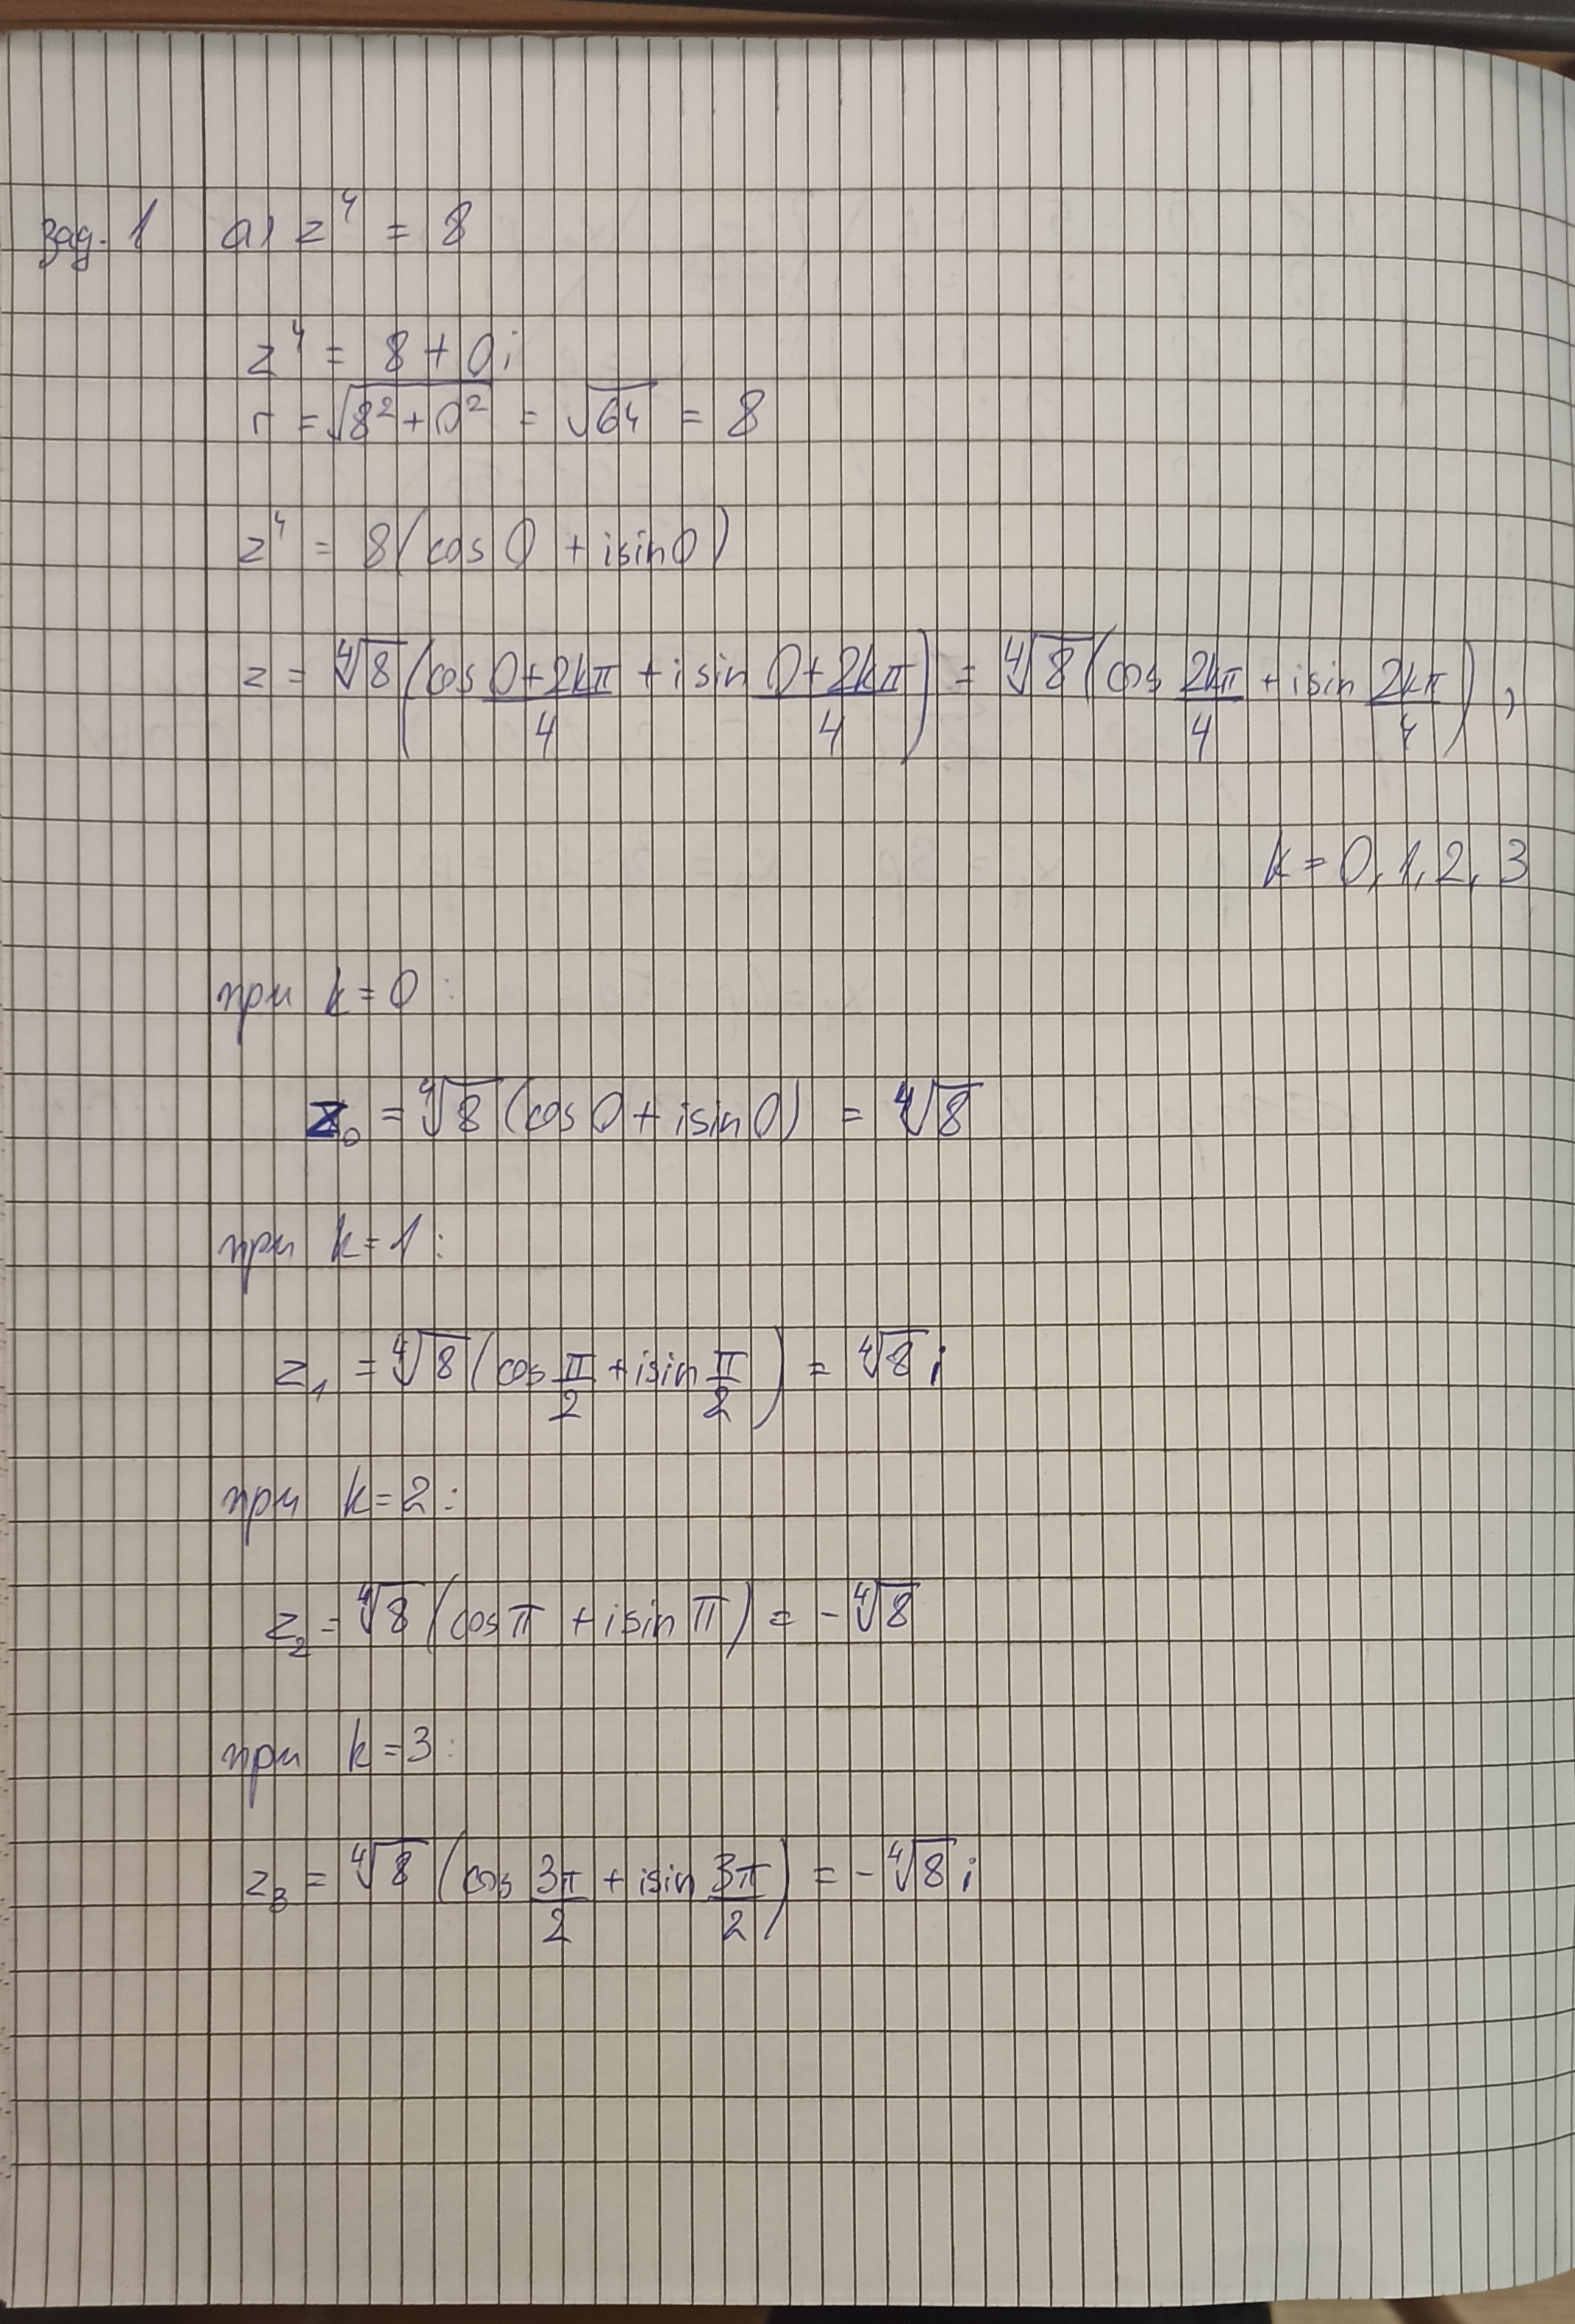 зад. 1 а) z⁴ = 8
z⁴ = 8 + 0i
r = √(8² + 0²) = √64 = 8
z⁴ = 8(cos 0 + isin 0)
z = ⁴√8 (cos (0+2kπ)/4 + isin (0+2kπ)/4) = ⁴√8 (cos 2kπ/4 + isin 2kπ/4),
k = 0, 1, 2, 3
при k = 0:
z₀ = ⁴√8 (cos 0 + isin 0) = ⁴√8
при k = 1:
z₁ = ⁴√8 (cos π/2 + isin π/2) = ⁴√8 i
при k = 2:
z₂ = ⁴√8 (cos π + isin π) = -⁴√8
при k = 3:
z₃ = ⁴√8 (cos 3π/2 + isin 3π/2) = -⁴√8 i